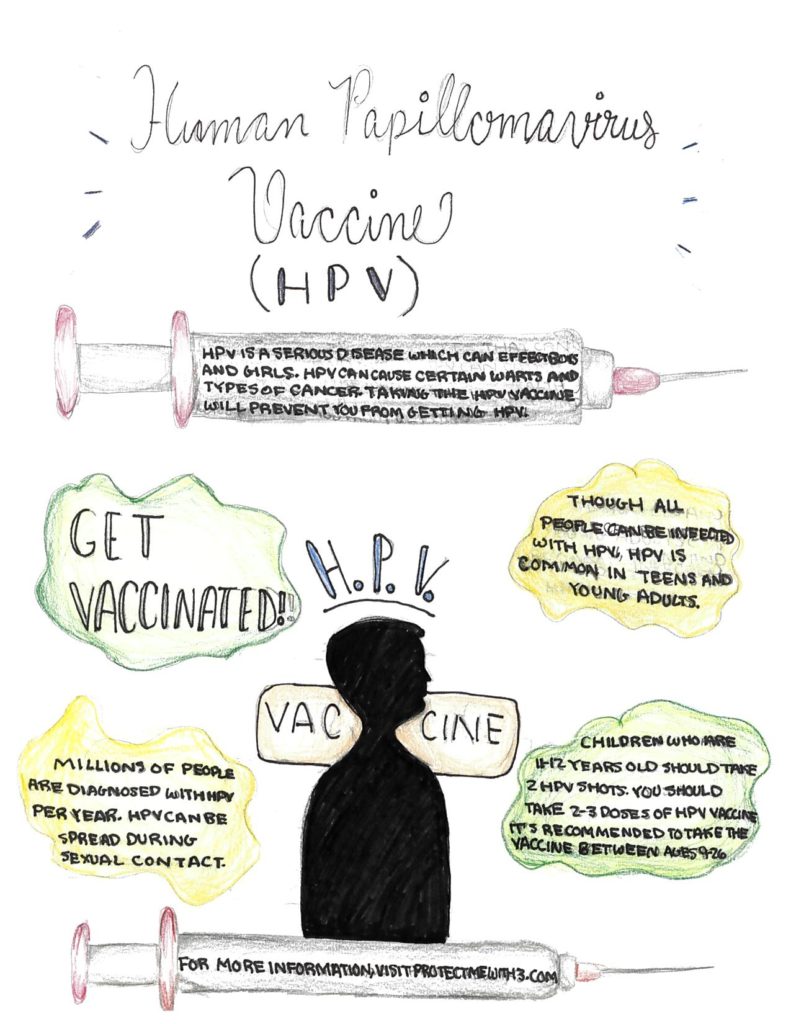 Human Papillomavirus
Vaccine
(HPV)
HPV IS A SERIOUS DISEASE WHICH CAN EFFECT BOYS
AND GIRLS. HPV CAN CAUSE CERTAIN WARTS AND
TYPES OF CANCER. TAKING THE HPV VACCINE
WILL PREVENT YOU FROM GETTING HPV.
GET
VACCINATED!!
H.P.V.
THOUGH ALL
PEOPLE CAN BE INFECTED
WITH HPV, HPV IS
COMMON IN TEENS AND
YOUNG ADULTS.
VAC CINE
MILLIONS OF PEOPLE
ARE DIAGNOSED WITH HPV
PER YEAR. HPV CAN BE
SPREAD DURING
SEXUAL CONTACT.
CHILDREN WHO ARE
11-12 YEARS OLD SHOULD TAKE
2 HPV SHOTS. YOU SHOULD
TAKE 2-3 DOSES OF HPV VACCINE
IT'S RECOMMENDED TO TAKE THE
VACCINE BETWEEN AGES 9-26
FOR MORE INFORMATION, VISIT PROTECTMEWITH3.COM